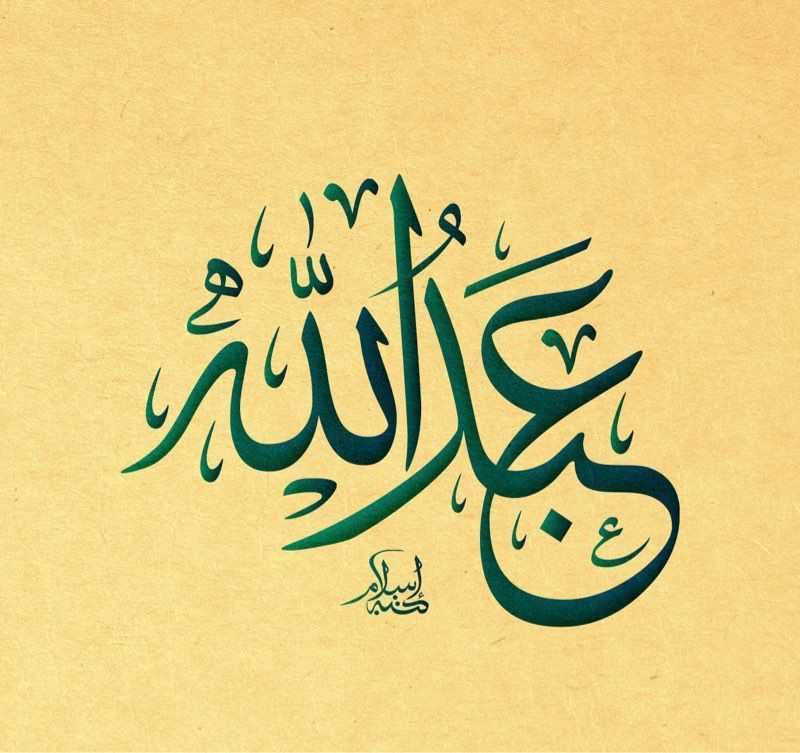 عَبدُ اللّٰه
كتبه إسلام